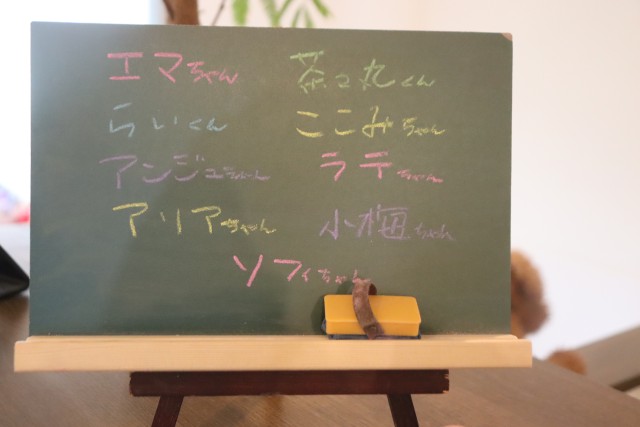 エマちゃん 茶々丸くん
らいくん ここみちゃん
アンジュちゃん ラテちゃん
アリアちゃん 小梅ちゃん
ソフィちゃん